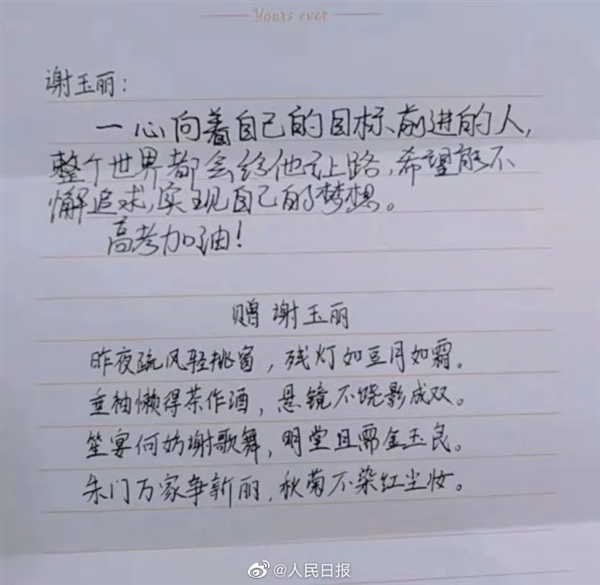 Yours ever
谢玉丽：
一心向着自己的目标前进的人，
整个世界都会给他让路，希望能不
懈追求，实现自己的梦想。
高考加油！
赠谢玉丽
昨夜疏风轻挑窗，残灯如豆月如霜。
垂袖懒得茶作酒，悬镜不晓影成双。
笙宴何妨谢歌舞，明堂且需金玉良。
朱门万家争新丽，秋菊不染红尘妆。
@人民日报